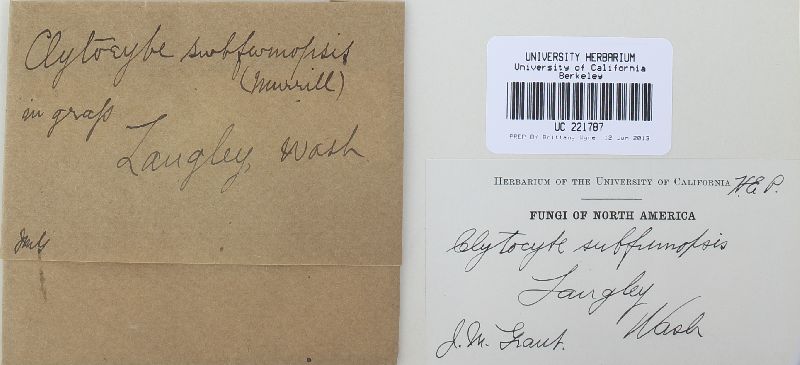 Clytocybe subfumopsis
(Murrill)
in grass
Langley, Wash
July
UNIVERSITY HERBARIUM
University of California
Berkeley
UC 221787
PREP BY Brittany Wyre 12 Jun 2013
HERBARIUM OF THE UNIVERSITY OF CALIFORNIA
FUNGI OF NORTH AMERICA
Clytocybe subfumopsis
Langley
Wash
J. M. Grant.